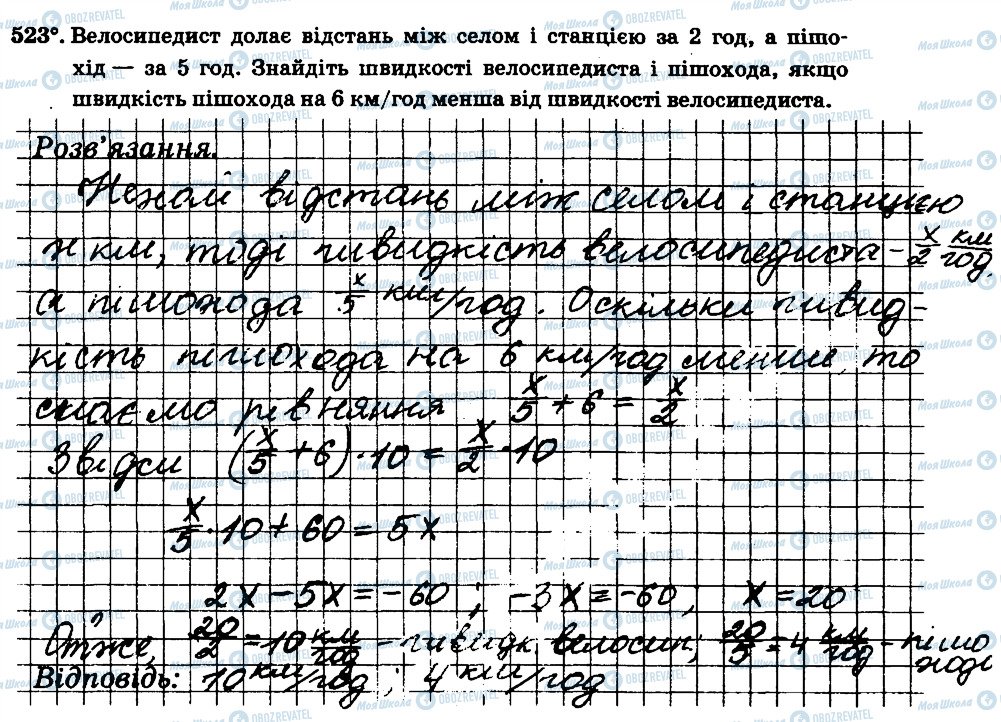 523°. Велосипедист долає відстань між селом і станцією за 2 год, а пішо-
хід — за 5 год. Знайдіть швидкості велосипедиста і пішохода, якщо
швидкість пішохода на 6 км/год менша від швидкості велосипедиста.
Розв'язання.
Нехай відстань між селом і станцією
x км, тоді швидкість велосипедиста – x/2 км/год,
а пішохода x/5 км/год. Оскільки швид-
кість пішохода на 6 км/год менше, то
маємо рівняння x/5 + 6 = x/2
Звідси (x/5 + 6) · 10 = x/2 · 10
x/5 · 10 + 60 = 5x
2x – 5x = –60 ; –3x = –60 ; x = 20
Отже, 20/2 = 10 км/год – швидк. велосип; 20/5 = 4 км/год – пішо
ході
Відповідь: 10 км/год ; 4 км/год